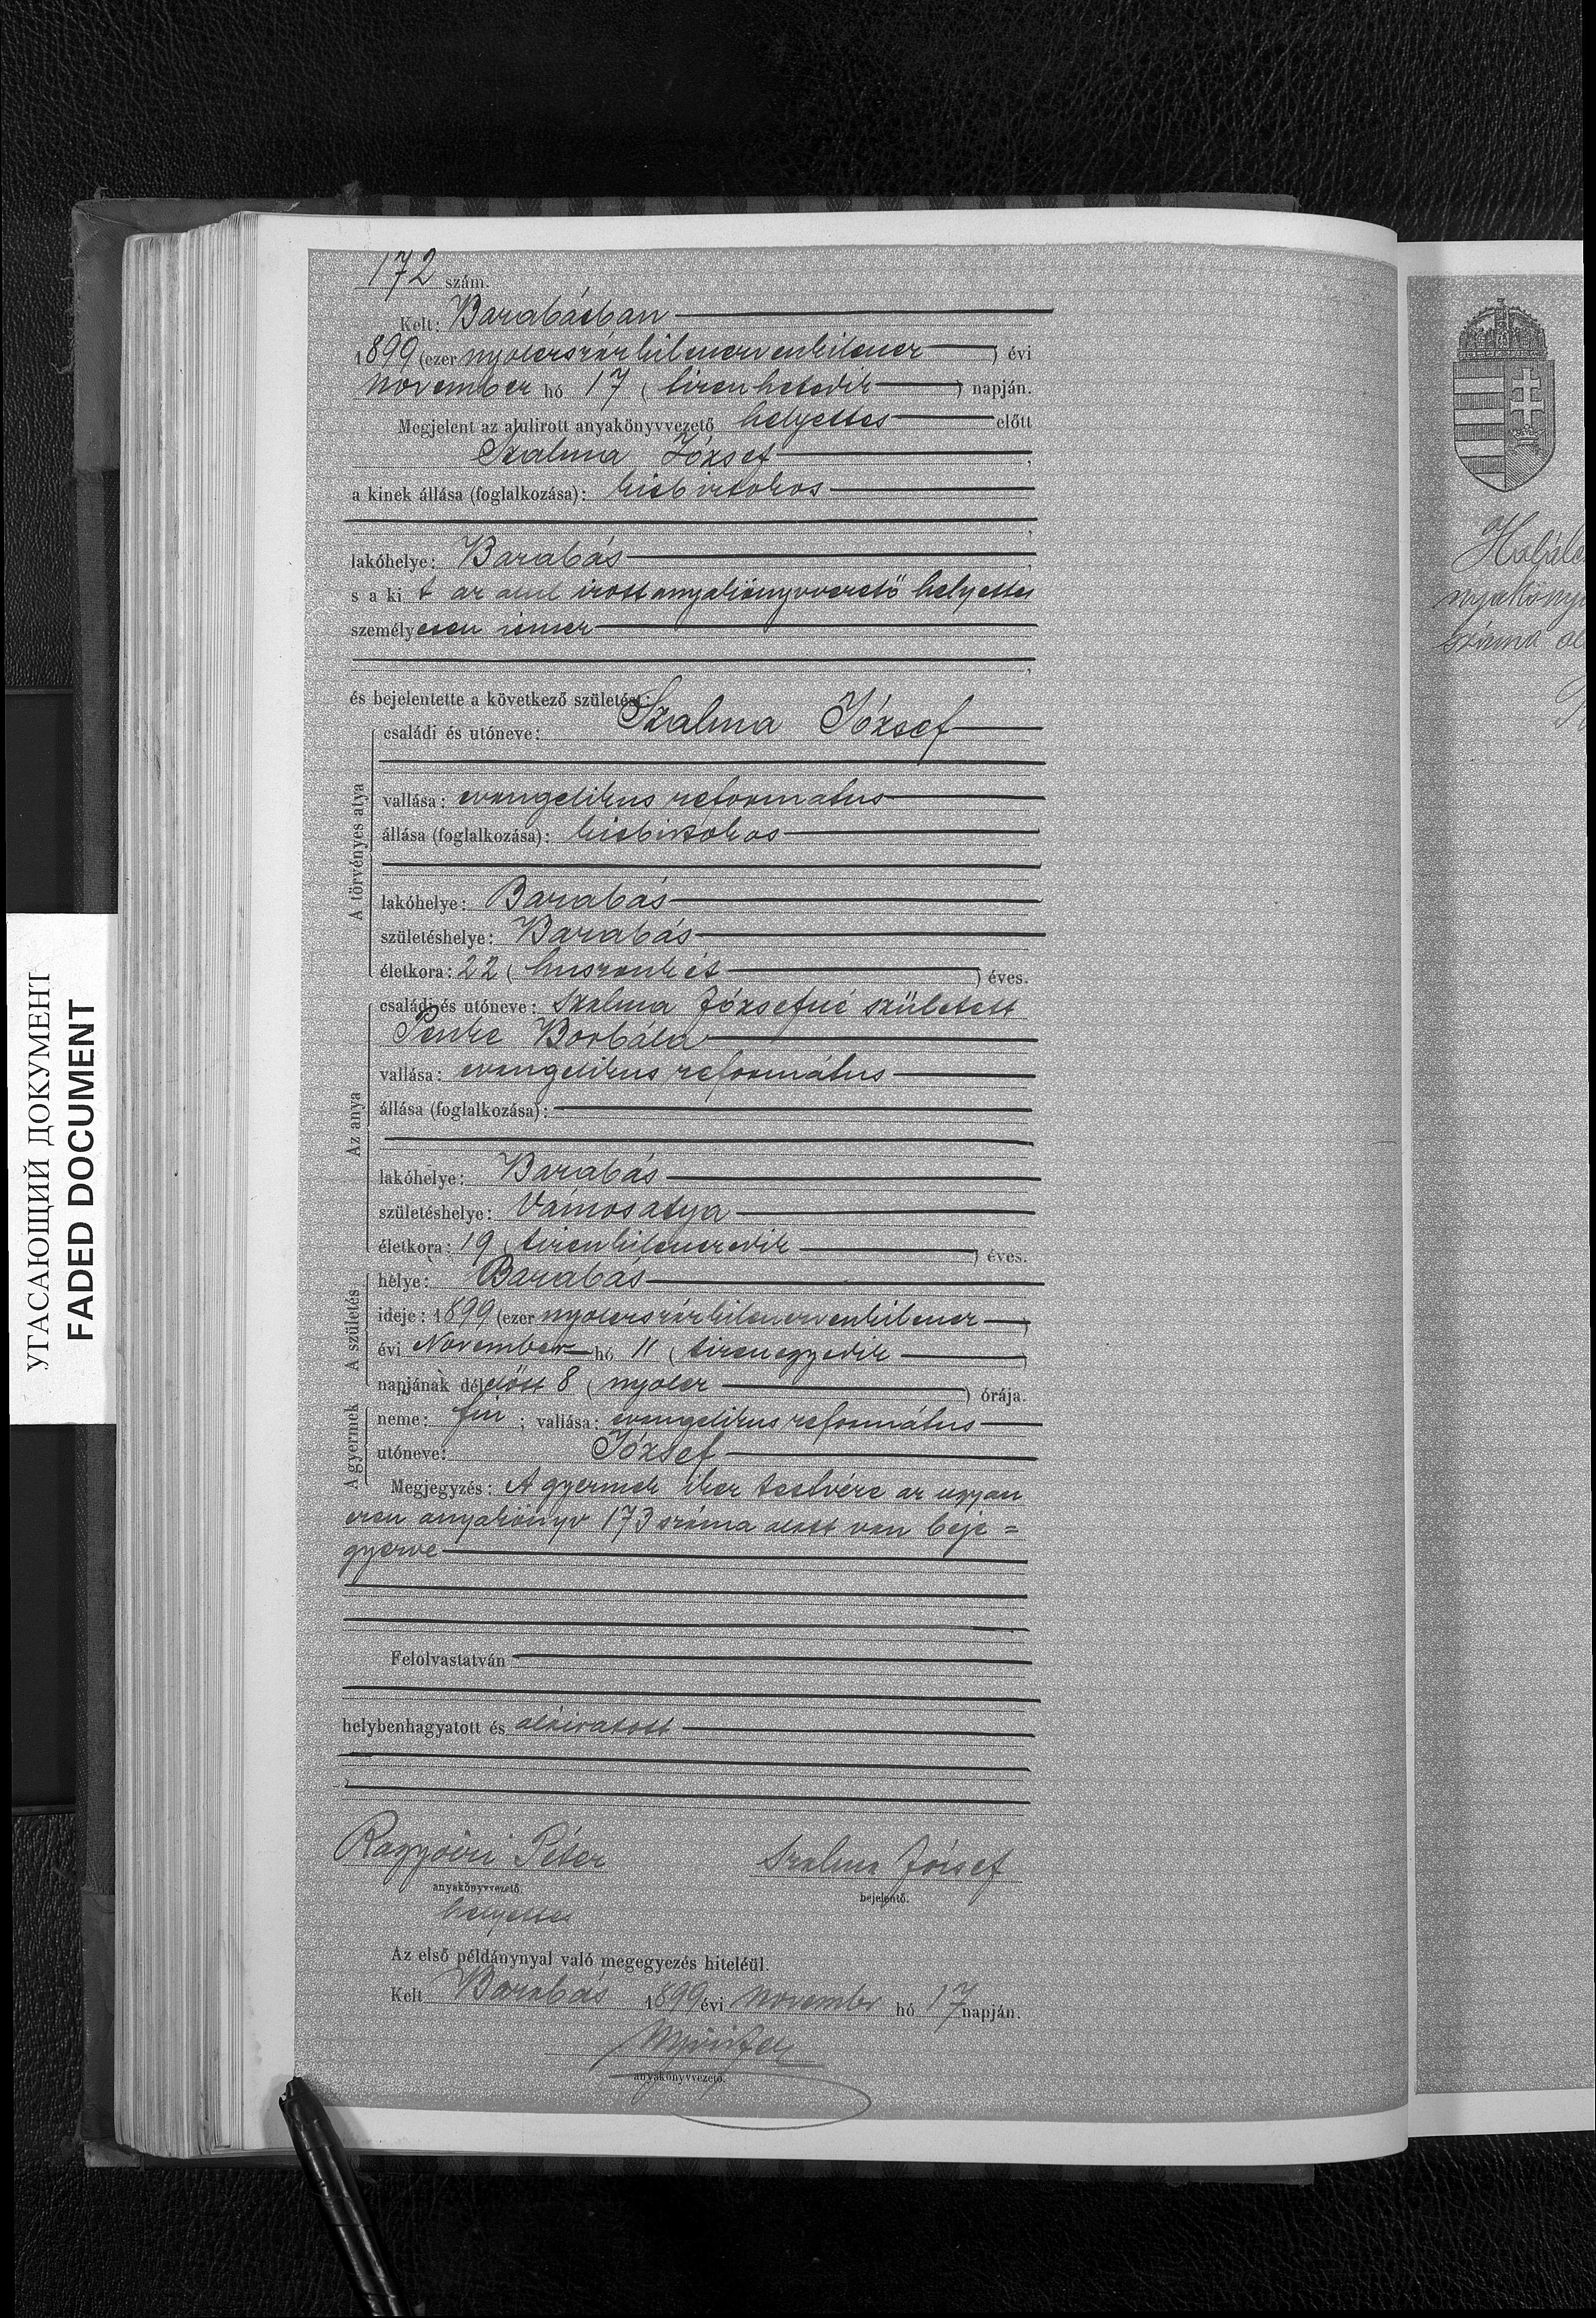 172 szám.
Kelt: Barabásban
1899 (ezer nyolczszázkilenczvenkilencz) évi
November hó 17 (tizenhetedik) napján.
Megjelent az alulirott anyakönyvvezető helyettes előtt
Szalma József,
a kinek állása (foglalkozása): kisbirtokos
lakóhelye: Barabás
s a kit az alul irott anyakönyvvezető helyettes
személyesen ismer
és bejelentette a következő születést:
A törvényes atya
családi és utóneve: Szalma József
vallása: evangelikus reformatus
állása (foglalkozása): kisbirtokos
lakóhelye: Barabás
születéshelye: Barabás
életkora: 22 (huszonkét) éves.
Az anya
családi és utóneve: Szalma Józsefné született
Penke Borbála
vallása: evangelikus református
állása (foglalkozása):
lakóhelye: Barabás
születéshelye: Vámosatya
életkora: 19 (tizenkilenczedik) éves.
A születés
helye: Barabás
ideje: 1899 (ezer nyolczszázkilenczvenkilencz)
évi November hó 11 (tizenegyedik)
napjának délelőtt 8 (nyolcz) órája.
A gyermek
neme: fiu; vallása: evangelikus református
utóneve: József
Megjegyzés: A gyermek iker testvére az ugyan
ezen anyakönyv 173 száma alatt van beje=
gyezve
Felolvastatván
helybenhagyatott és aláiratott
Péter
Szalma József
anyakönyvvezető.
bejelentő.
helyettes
Az első példánynyal való megegyezés hiteléül.
Kelt Barabás 1899 évi Novembr hó 17 napján.
anyakönyvvezető.
УГАСАЮЩИЙ ДОКУМЕНТ
FADED DOCUMENT